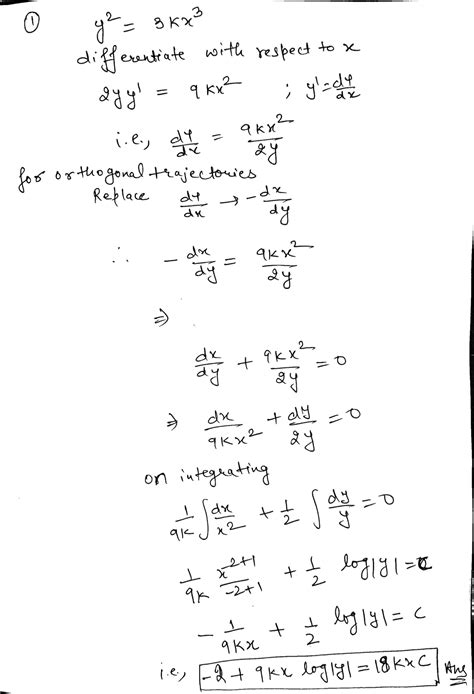 ① y² = 3Kx³
differentiate with respect to x
2yy' = 9Kx² ; y' = dy/dx
i.e., dy/dx = 9Kx²/2y
for orthogonal trajectories
Replace dy/dx → -dx/dy
∴ -dx/dy = 9Kx²/2y
⇒
dx/dy + 9Kx²/2y = 0
⇒ dx/9Kx² + dy/2y = 0
on integrating
1/9K ∫dx/x² + 1/2 ∫dy/y = 0
1/9K x^-2+1/-2+1 + 1/2 log|y| = C
-1/9Kx + 1/2 log|y| = C
i.e., -2 + 9Kx log|y| = 18KxC Ans